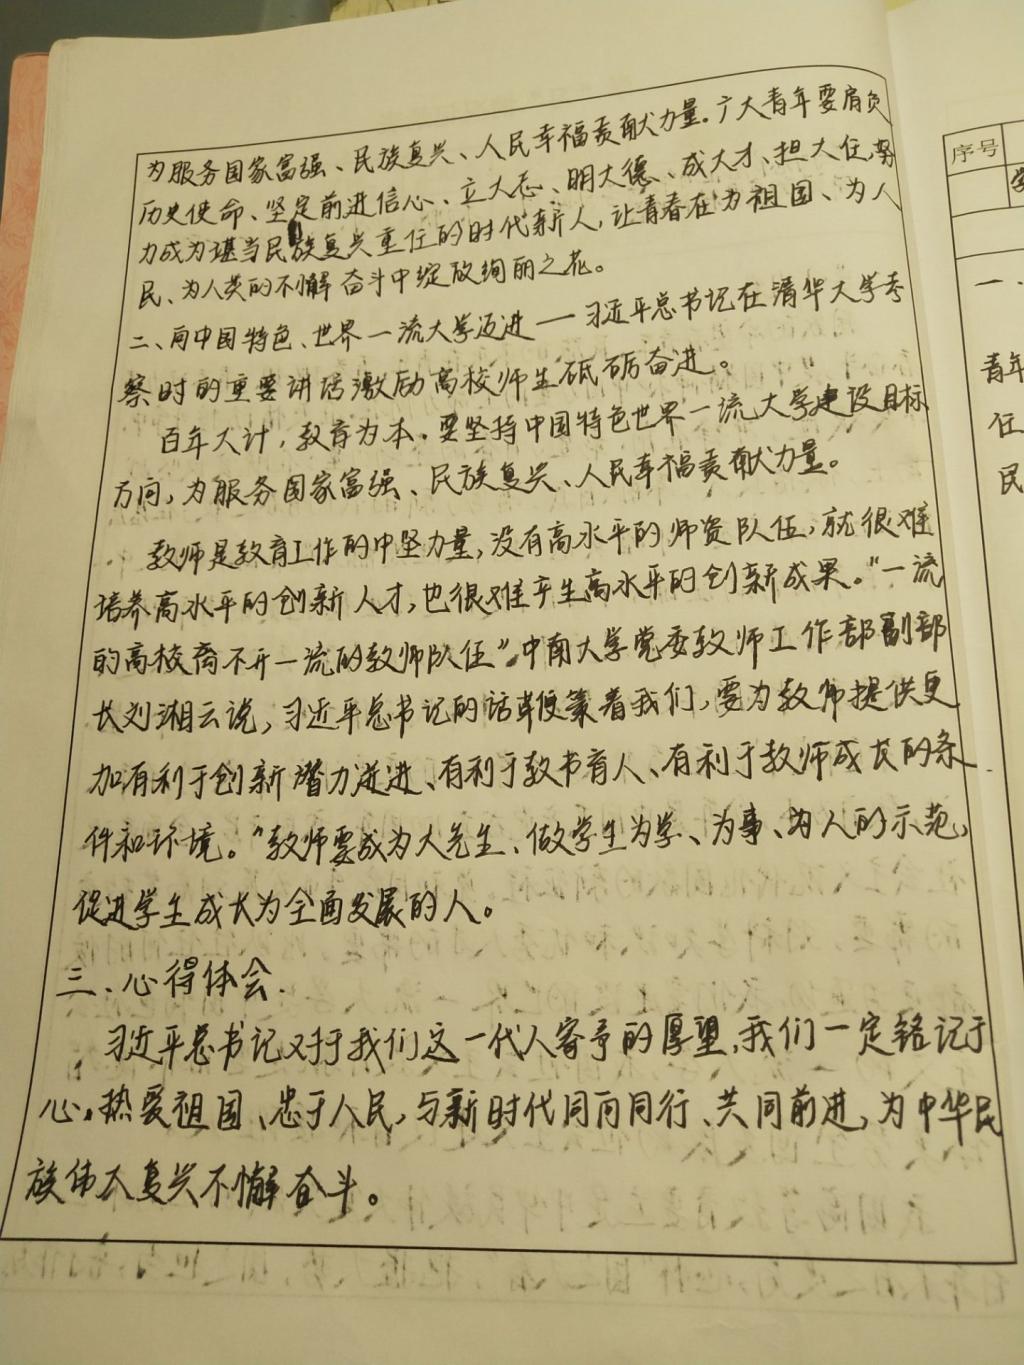 为服务国家富强、民族复兴、人民幸福贡献力量。广大青年要肩负
历史使命、坚定前进信心、立大志、明大德、成大才、担大任,努
力成为堪当民族复兴重任的时代新人,让青春在为祖国、为人
民、为人类的不懈奋斗中绽放绚丽之花。
二、向中国特色、世界一流大学迈进——习近平总书记在清华大学考
察时的重要讲话激励高校师生砥砺奋进。
百年大计,教育为本。要坚持中国特色世界一流大学建设目标
方向,为服务国家富强、民族复兴、人民幸福贡献力量。
教师是教育工作的中坚力量,没有高水平的师资队伍,就很难
培养高水平的创新人才,也很难产生高水平的创新成果。"一流
的高校离不开一流的教师队伍"。中南大学党委教师工作部副部
长刘湘云说,习近平总书记的话鞭策着我们,要为教师提供更
加有利于创新潜力迸进、有利于教书育人、有利于教师成长的条
件和环境。"教师要成为大先生、做学生为学、为事、为人的示范,
促进学生成长为全面发展的人。
三、心得体会.
习近平总书记对于我们这一代人寄予的厚望,我们一定铭记于
心。热爱祖国、忠于人民,与新时代同向同行、共同前进,为中华民
族伟大复兴不懈奋斗。
序号
一、
青年
任
民